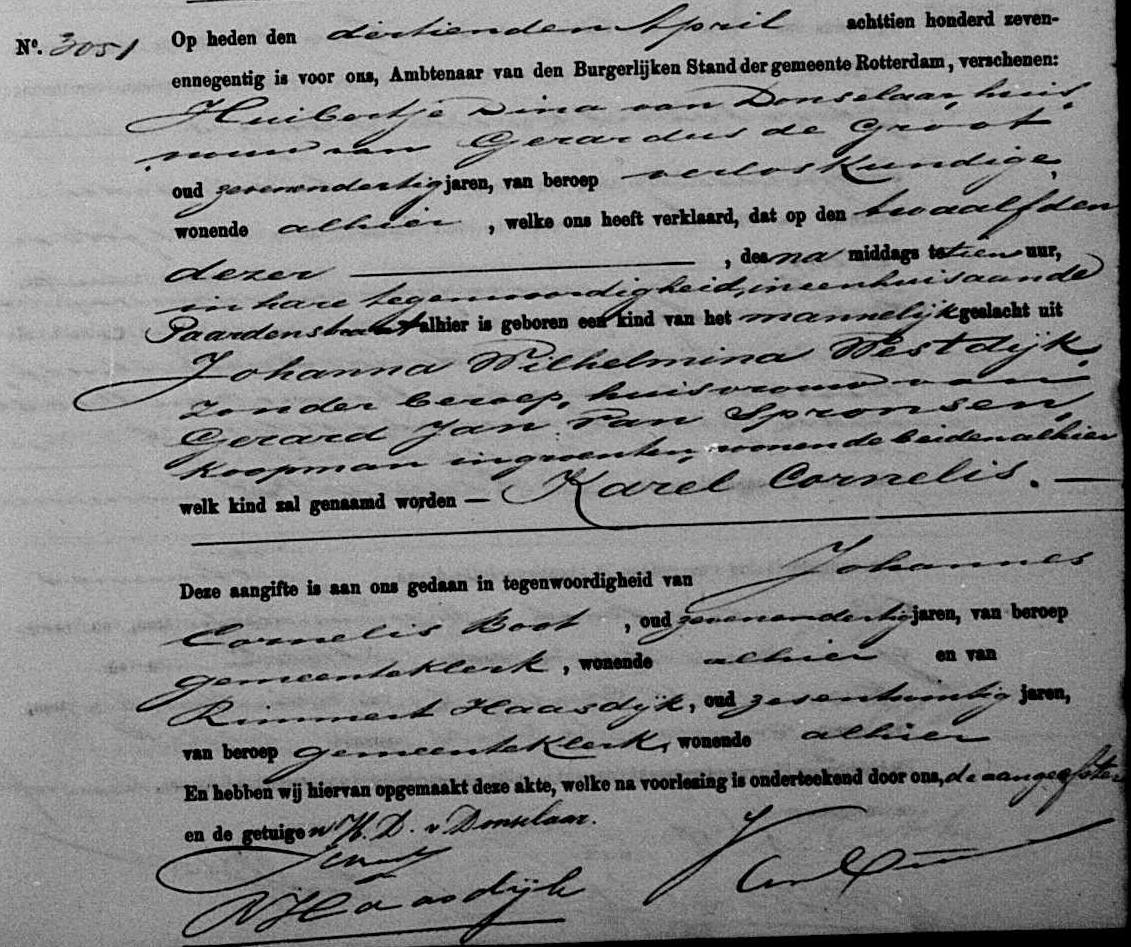 Nº. 3051 Op heden den dertienden April achttien honderd zeven-
ennegentig is voor ons, Ambtenaar van den Burgerlijken Stand der gemeente Rotterdam, verschenen:
Huibertje Dina van Donselaar, huis
vrouw van Gerardus de Groot
oud zevenendertig jaren, van beroep verloskundige,
wonende alhier, welke ons heeft verklaard, dat op den twaalfden
dezer, des na middags te tien uur,
in hare tegenwoordigheid, in een huis aan de
Paardenstraat alhier is geboren een kind van het mannelijk geslacht uit
Johanna Wilhelmina Westdijk,
zonder beroep, huisvrouw van
Gerard Jan van Spronsen,
koopman in groenten, wonende beiden alhier
welk kind zal genaamd worden — Karel Cornelis. —
Deze aangifte is aan ons gedaan in tegenwoordigheid van Johannes
Cornelis Boot, oud zevenendertig jaren, van beroep
gemeenteklerk, wonende alhier en van
Rimmert Haasdijk, oud zesentwintig jaren,
van beroep gemeenteklerk, wonende alhier
En hebben wij hiervan opgemaakt deze akte, welke na voorlezing is onderteekend door ons, de aangeefster
en de getuigen H. D. v Donselaar.
RHaasdijk